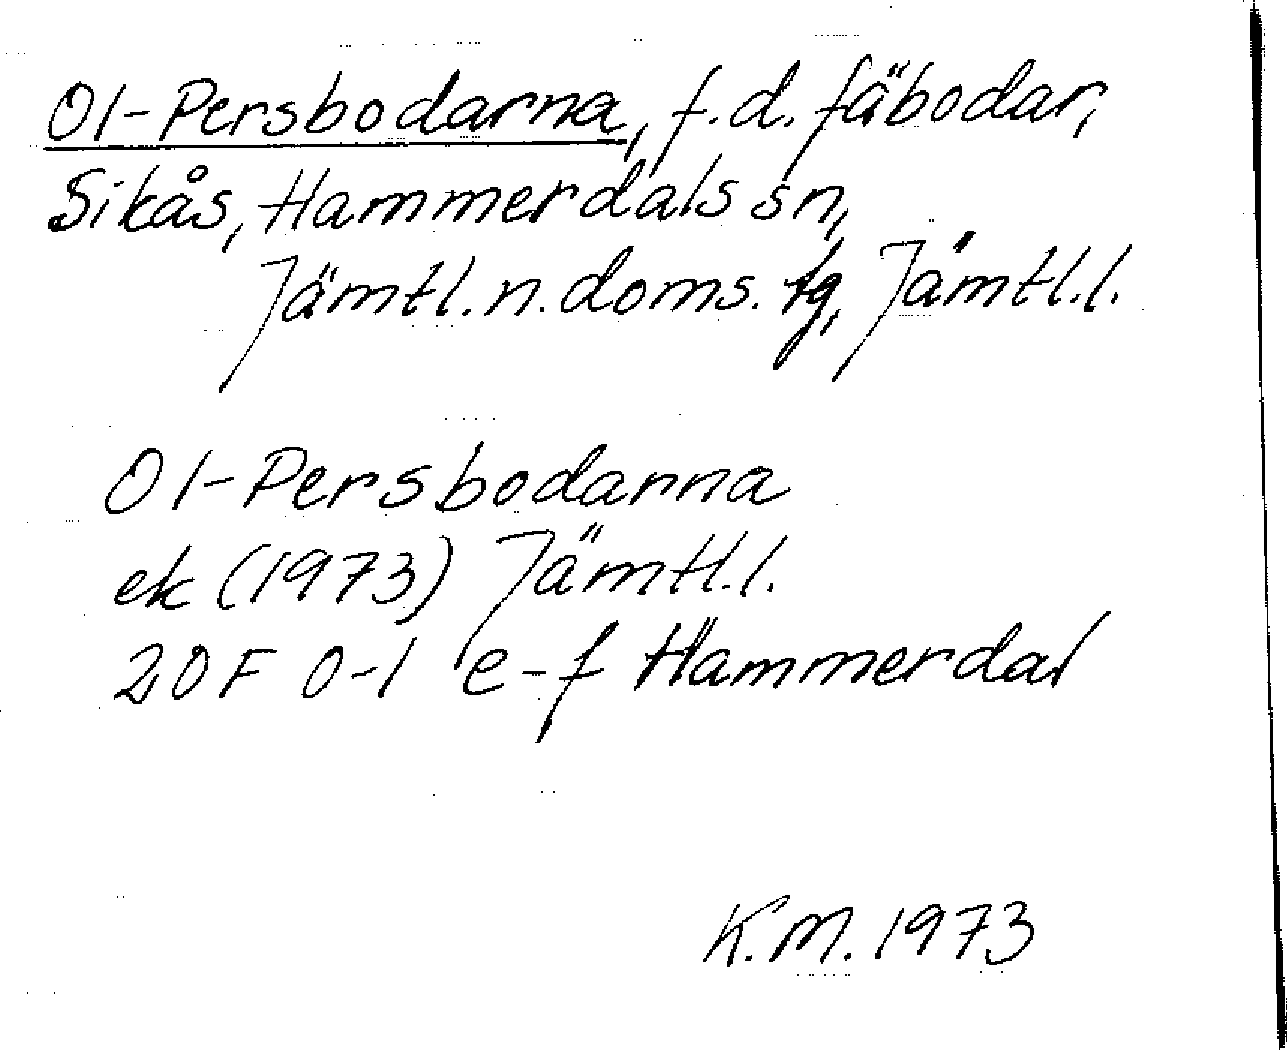 Ol-Persbodarna, f.d. fäbodar,
Sikås, Hammerdals sn,
Jämtl. n. doms. tg, Jämtl. l.
Ol-Persbodarna
ek (1973) Jämtl. l.
20F 0-1 e-f Hammerdal
K.M. 1973